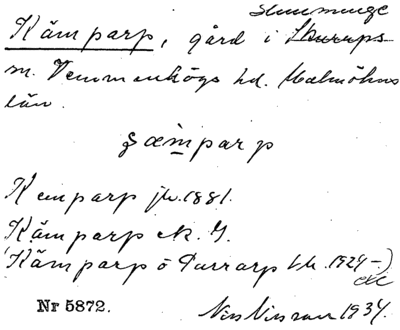 Slimminge
Kämparp, gård i Skurups
sn. Vemmenhögs hd. Malmöhus
län.
Kemparp jb. 1881.
Kämparp ek. G.
(Kämparp o Purrarp 1929-)
etc
Nr 5872. Nils Nilsson 1934.